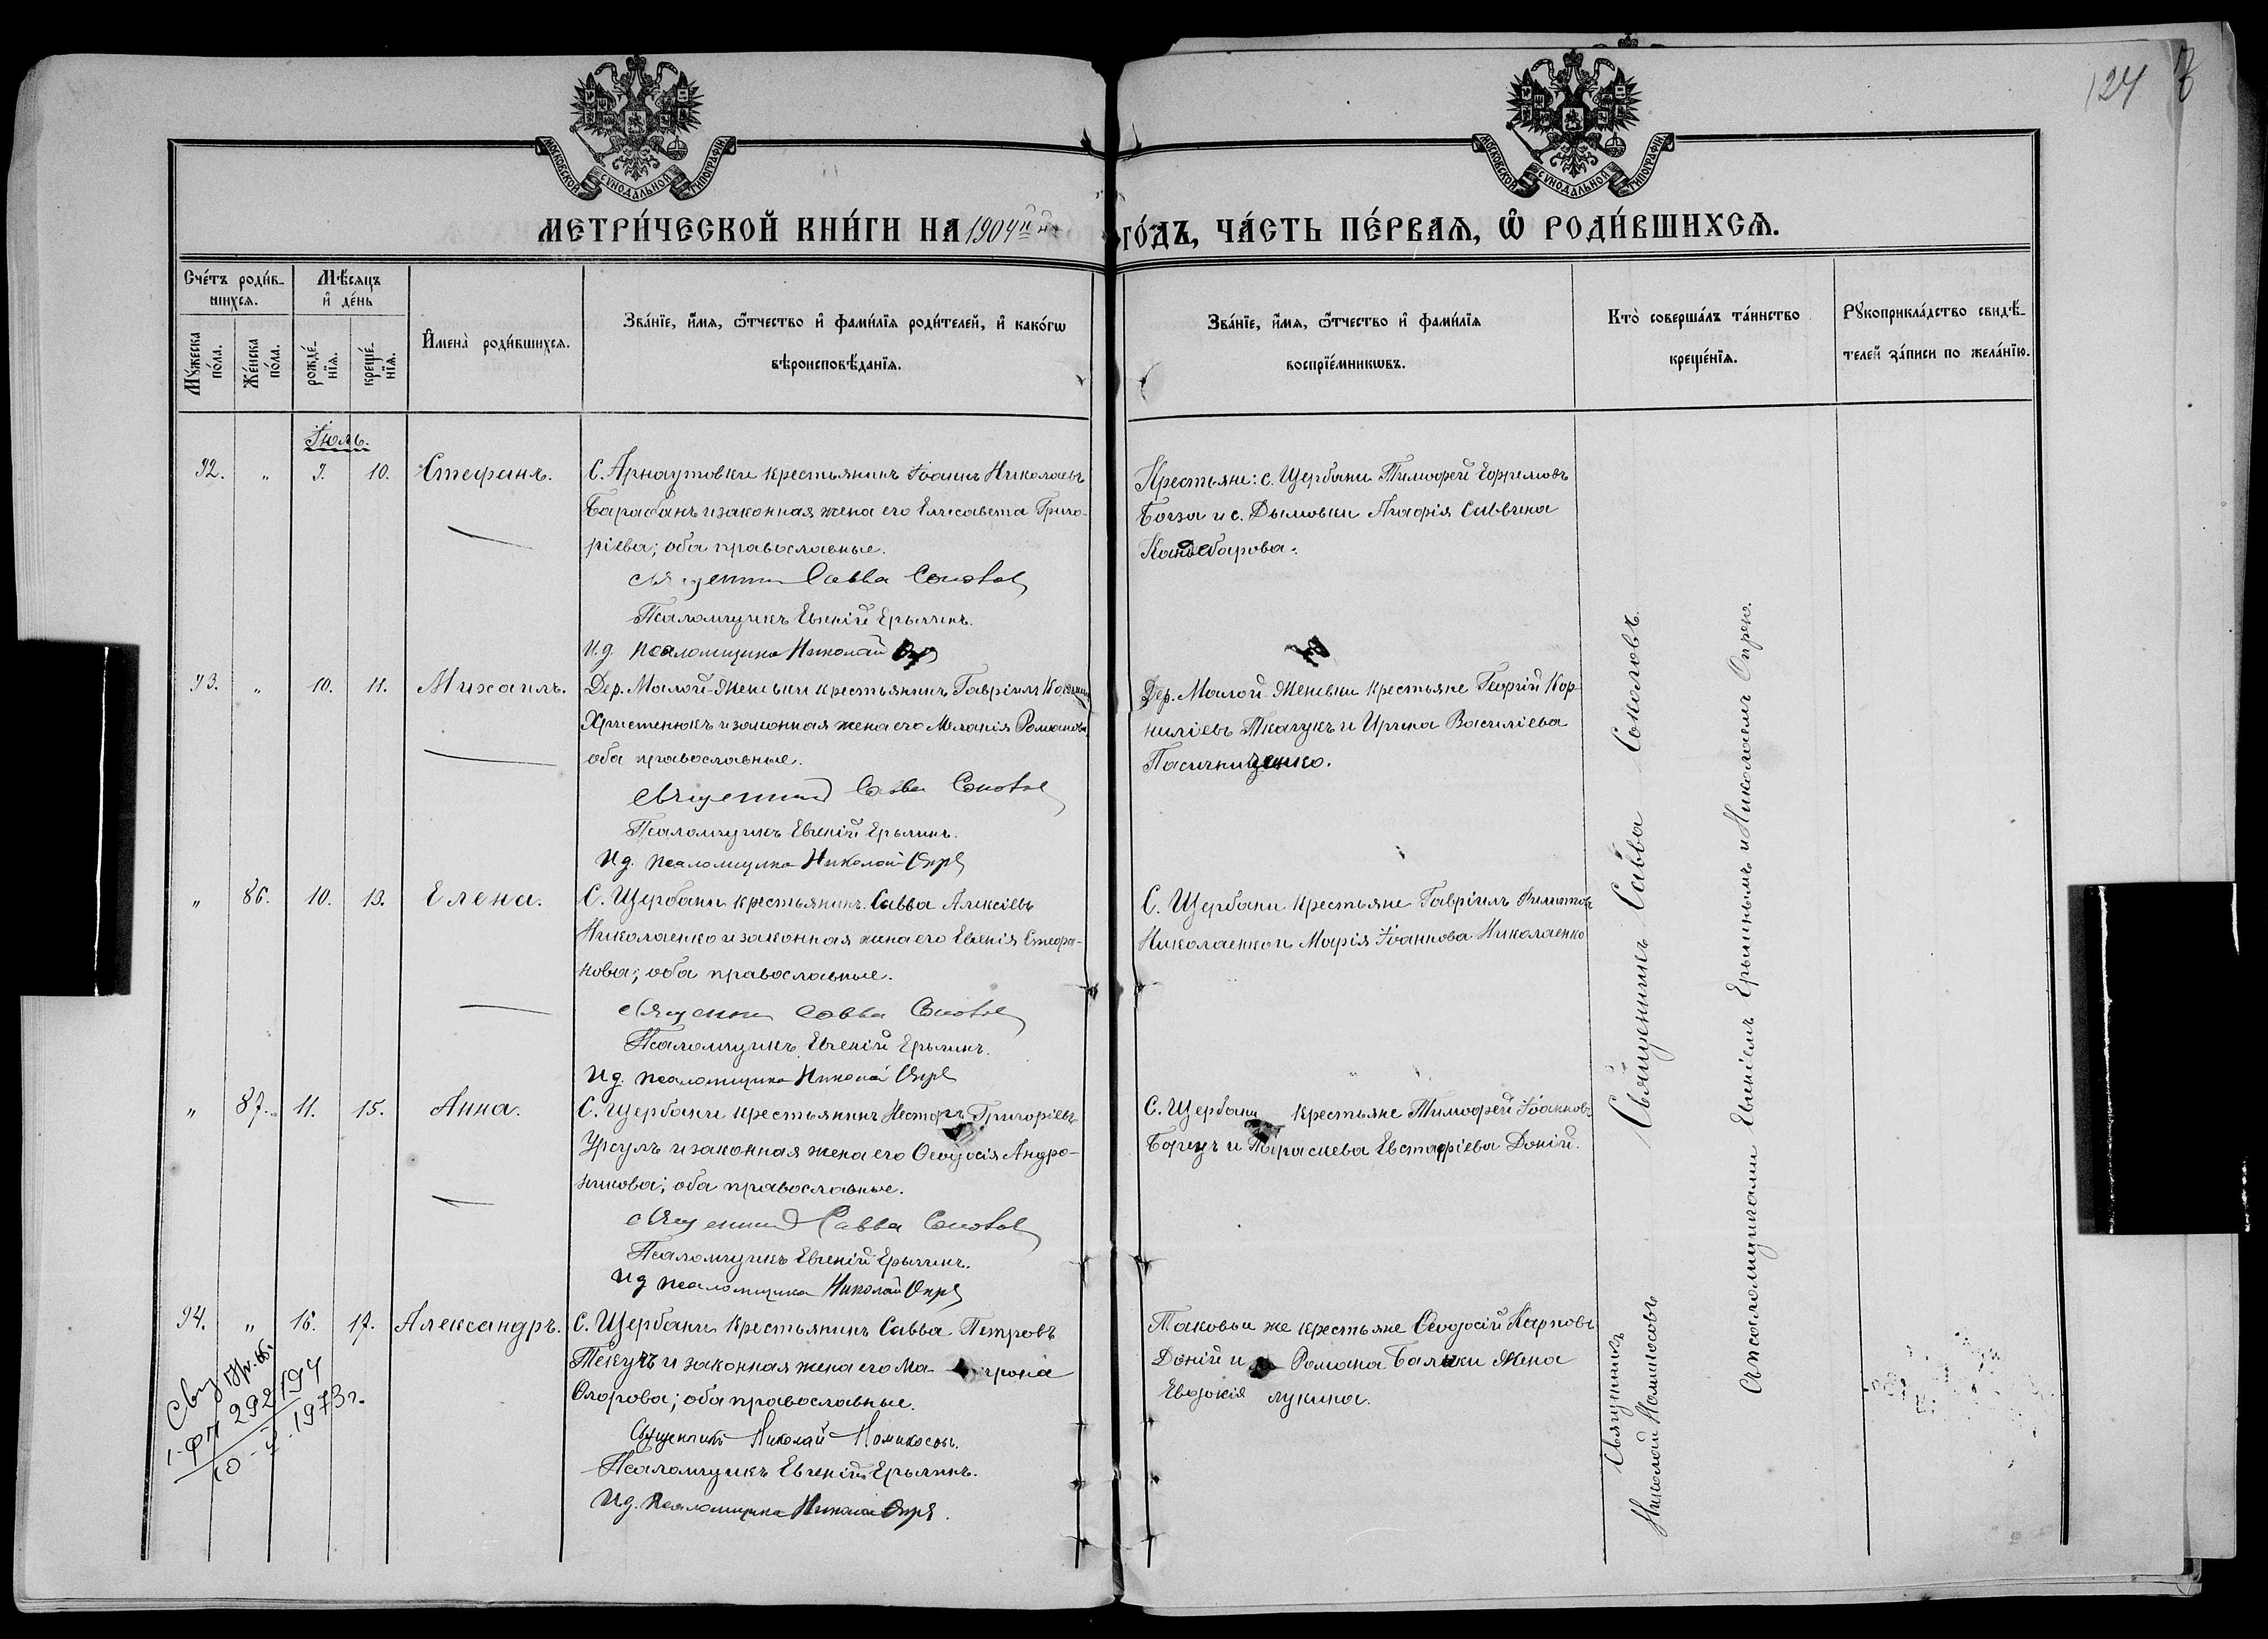 124
МОСКОВСКОЙ СѴНОДАЛЬНОЙ ТИПОГРАФІИ
МОСКОВСКОЙ СѴНОДАЛЬНОЙ ТИПОГРАФІИ
МЕТРИ́ЧЕСКОЙ КНИ́ГИ НА 1904 й ГО́ДЪ, ЧА́СТЬ ПЕ́РВАѦ, Ѽ РОДИ́ВШИХСѦ.
Сче́тъ роди́в-
шихсѧ.
Мѣ́сѧцъ
и҆ де́нь
Мꙋ́жеска по́ла.
Же́нска по́ла.
рожде́-
нїѧ.
креще́-
нїѧ.
И҆мена̀ роди́вшихсѧ.
Зва́нїе, и҆́мѧ, ѻ҆́тчество и҆ фами́лїѧ роди́телей, и҆ како́гѡ
вѣроисповѣ́данїѧ.
Зва́нїе, и҆́мѧ, ѻ҆́тчество и҆ фами́лїѧ
воспрїе́мникѡвъ.
Кто̀ соверша́лъ та́инство
креще́нїѧ.
Рꙋкоприкла́дство свидѣ́-
телей за́писи по жела́нїю.
Іюль.
92. " 9. 10. Стефанъ.
С. Арнаутовки крестьянинъ Іоаннъ Николаевъ
Барабанъ и законная жена его Елисавета Григо-
ріева; оба православные.
Священникъ Савва Соколовъ
Псаломщикъ Евгеній Ерыминъ.
И.д. псаломщика Николай
Крестьяне: с. Щербани Тимофей Ефремовъ
Богза и с. Дымовки Агафія Саввина
Кандебарова.
93. " 10. 11. Михаилъ.
Дер. Малой-Женевки крестьянинъ Гавріилъ
Христенюкъ и законная жена его Меланія Романова
оба православные.
Священникъ Савва Соколовъ
Псаломщикъ Евгеній Ерыминъ.
И.д. псаломщика Николай Опря
Дер. Малой Женевки крестьяне Георгій Кор-
ниліевъ Ткачукъ и Ирина Василіева
" 86. 10. 13. Елена.
С. Щербани крестьянинъ Савва Алексіевъ
Николаенко и законная жена его Евгенія Стефа-
нова; оба православные.
Священникъ Савва Соколовъ
Псаломщикъ Евгеній Ерыминъ.
И.д. псаломщика Николай Опря
С. Щербани крестьяне Гавріилъ Филиповъ
Николаенко и Марія Іоаннова Николаенко
" 87. 11. 15. Анна.
С. Щербани крестьянинъ Несторъ Григоріевъ
Урсулъ и законная жена его Ѳеодосія Андро-
никова; оба православные.
Священникъ Савва Соколовъ
Псаломщикъ Евгеній Ерыминъ.
И.д. псаломщика Николай Опря
С. Щербани крестьяне Тимофей Іоанновъ
Борецъ и Параскева Евстафіева Доній.
94. " 16. 17. Александръ.
С. Щербани крестьянинъ Савва Петровъ
Текучъ и законная жена его Ма трона
Ѳлорова; оба православные.
Священникъ Николай Номикосовъ.
Псаломщикъ Евгеній Ерыминъ.
И.д. псаломщика Николай Опря.
Таковы же крестьяне Ѳеодосій Карповъ
Доній и Романа Балики жена
Евдокія Лукина.
Священникъ Савва Соколовъ.
Съ псаломщиками Евгеніемъ Ерыминымъ и Николаемъ Опрею.
Священникъ
Николай Номикосовъ
1-ФП 292194
10-V-1973г.